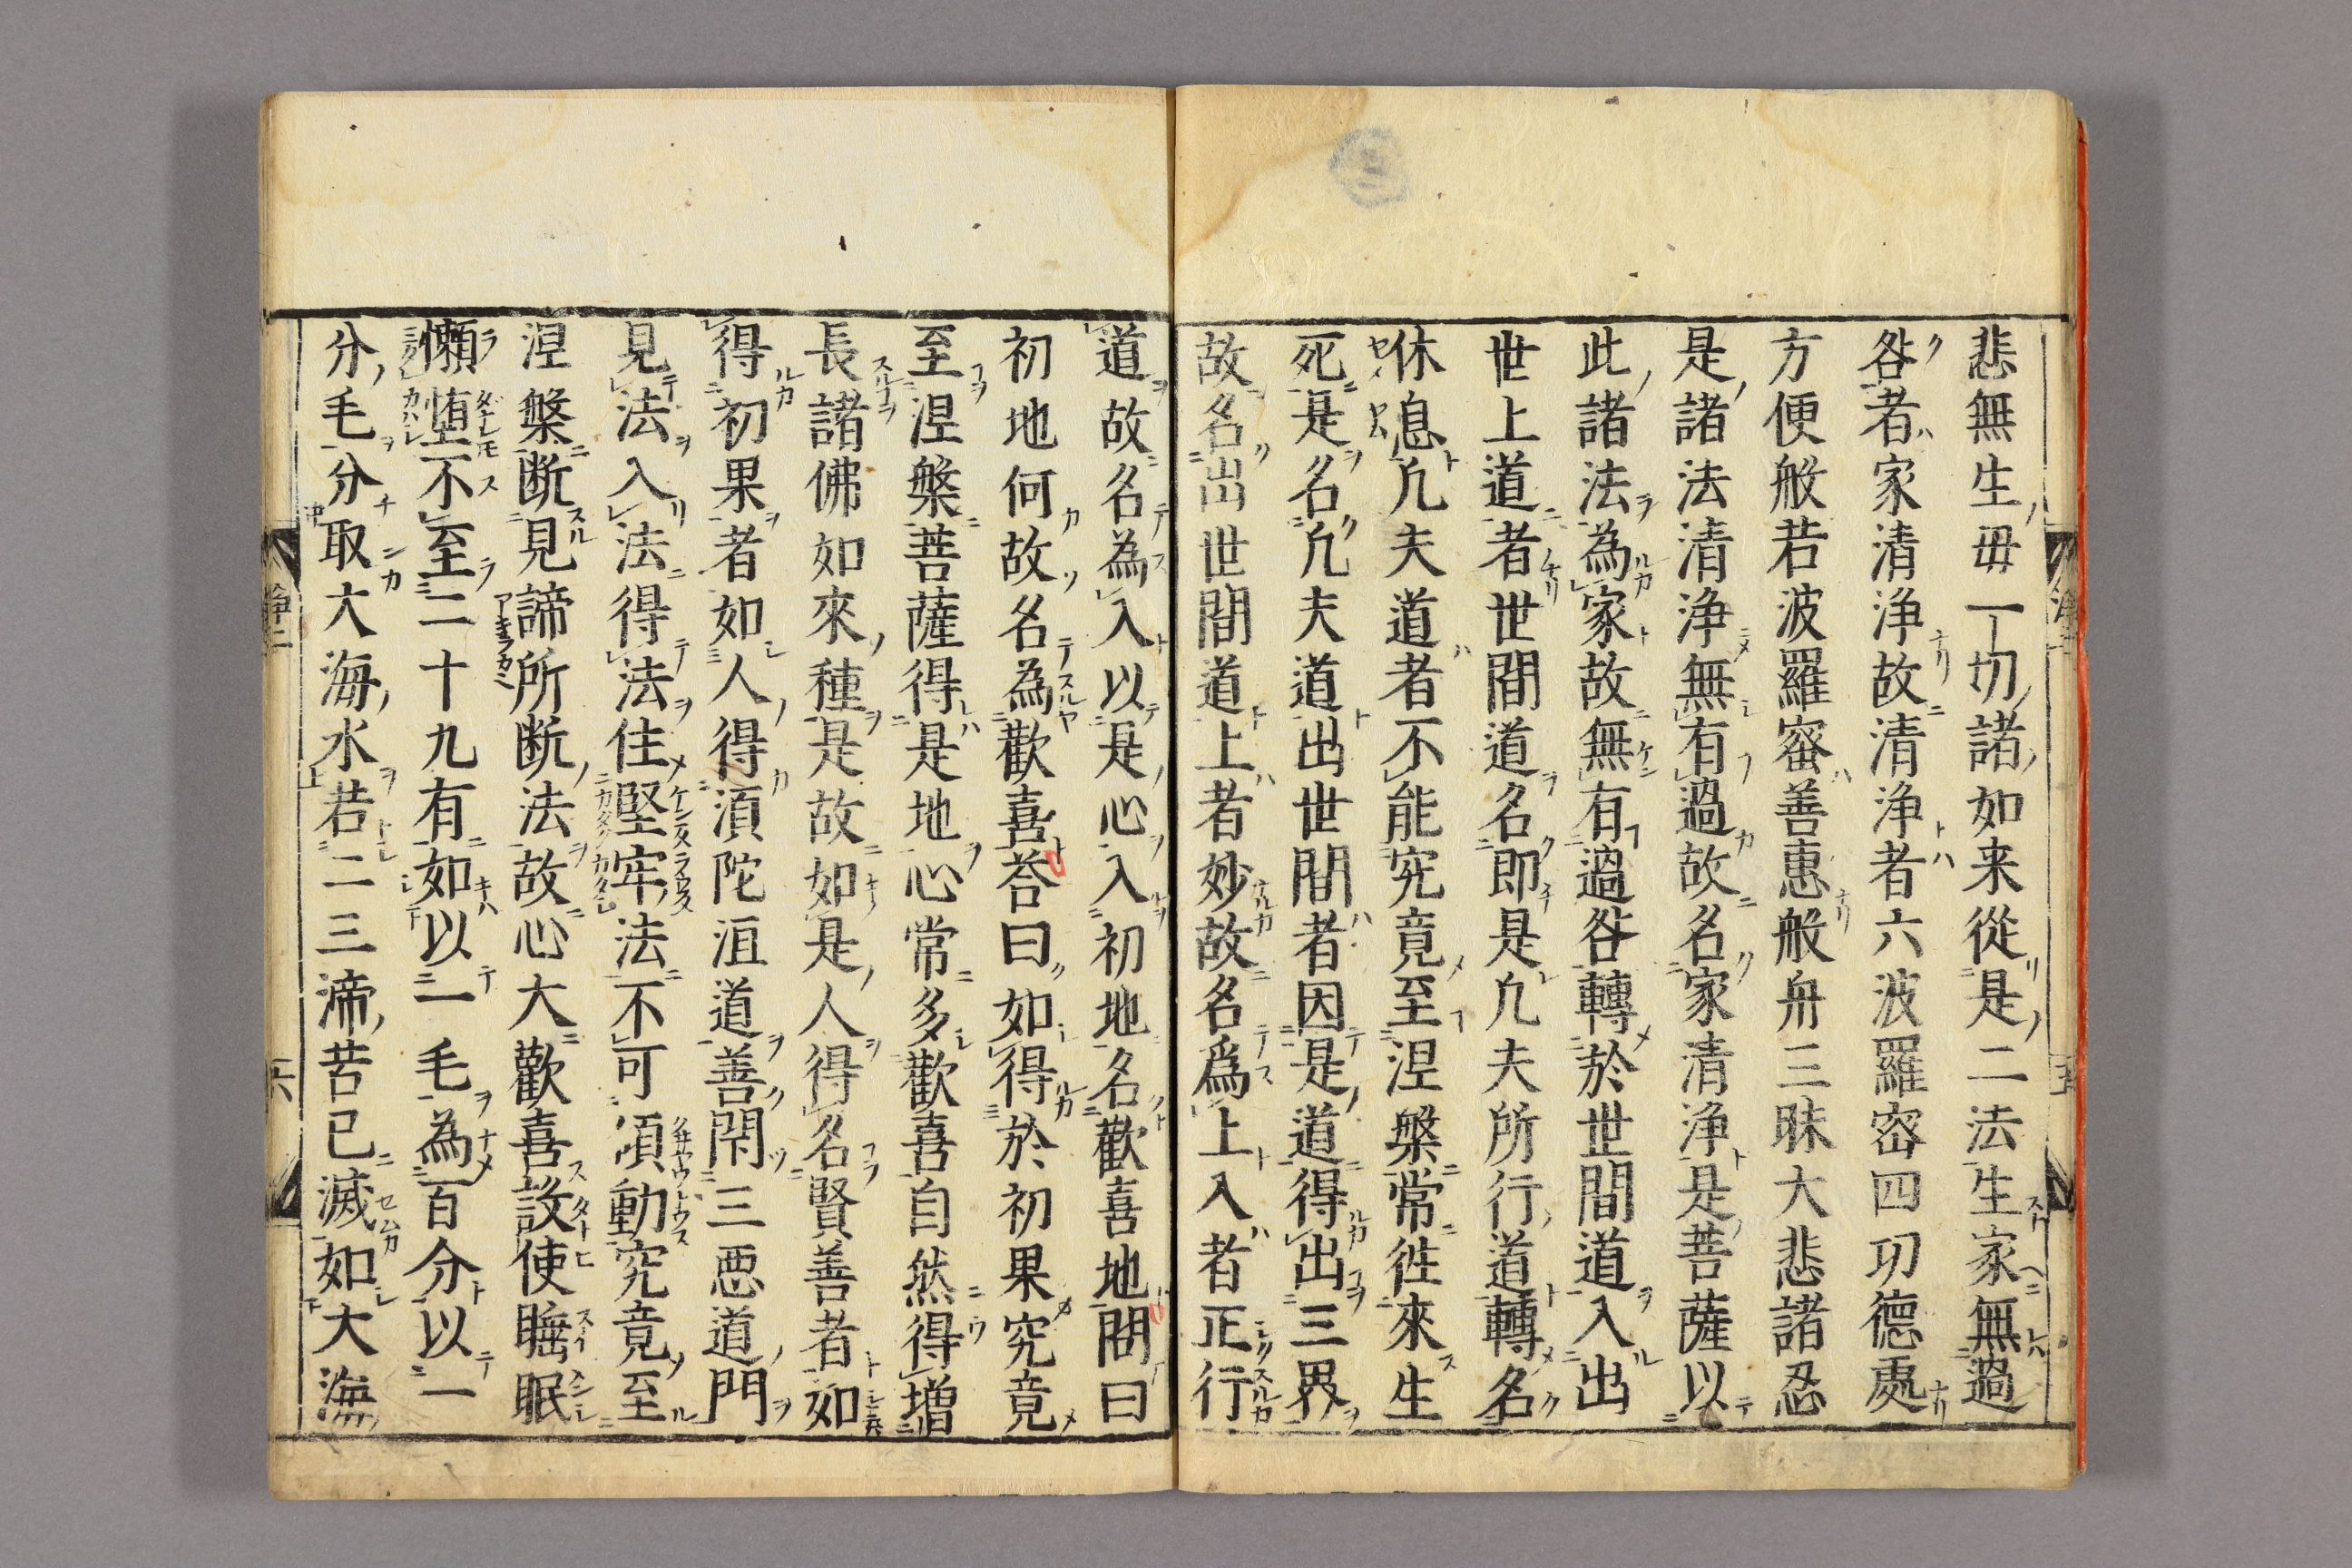 悲無生毋一切諸如来從是二法生家無過
咎者家清浄故清浄者六波羅密四功德處
方便般若波羅蜜善惠般舟三昧大悲諸忍
是諸法清浄無有過故名家清浄是菩薩以
此諸法為家故無有過咎轉於世間道入出
世上道者世間道名即是凢夫所行道轉名
休息凢夫道者不能究竟至涅槃常徃來生
死是名凢夫道出世間者因是道得出三界
故名出世間道上者妙故名爲上入者正行
道故名為入以是心入初地名歡喜地問曰
初地何故名為歡喜荅曰如得於初果究竟
至涅槃菩薩得是地心常多歡喜自然得増
長諸佛如來種是故如是人得名賢善者如
得初果者如人得湏陀洹道善閇三悪道門
見法入法得法住堅牢法不可傾動究竟至
涅槃断見諦所断法故心大歡喜設使睡眠
懶堕不至二十九有如以一毛為百分以一
分毛分取大海水若二三渧苦已滅如大海